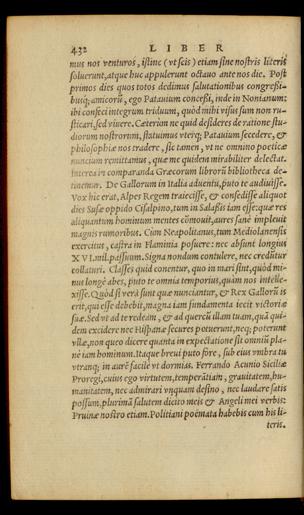 432 LIBER
mus nos venturos, istinc (vt scis) etiam sine nostris literis
soluerunt, atque huc appulerunt octauo ante nos die. Post
primos dies quos totos dedimus salutationibus congressi-
busq; amicorū, ego Patauium concessi, inde in Nonianum:
ibi confeci integrum triduum, quòd mihi visus sum non ru-
sticari, sed viuere. Cæterùm ne quid desideres de ratione stu-
diorum nostrorum, statuimus vterq; Patauium secedere, &
philosophiæ nos tradere, sic tamen, vt ne omnino poeticæ
nuncium remittamus, quæ me quidem mirabiliter delectat.
Interea in comparanda Græcorum librorū bibliotheca de-
tinemur. De Gallorum in Italiã aduentu, puto te audiuisse.
Vox hîc erat, Alpes Regem traiecisse, & consedisse aliquot
dies Susæ oppido Cisalpino, tum in Salassis iam esse: quæ res
aliquantum hominum mentes cōmouit, aures sanè impleuit
magnis rumoribus. Cùm Neapolitanus, tum Mediolanensis
exercitus, castra in Flaminia posuere: nec absunt longius
XVI. mil. passuum. Signa nondum contulere, nec credūtur
collaturi. Classes quid conentur, quo in mari sint, quòd mi-
nus longè abes, puto te omnia temporius, quàm nos intelle-
xisse. Quòd si vera sunt quæ nunciantur, & Rex Gallorū is
erit, qui esse debebit, magna iam fundamenta iecit victoriæ
suæ. Sed vt ad te redeam, & ad quercū illam tuam, quã qui-
dem excidere nec Hispanæ secures potuerunt, neq; poterunt
vllæ, non queo dicere quanta in expectatione sit omniū pla-
nè iam hominum. Itaque breui puto fore, sub eius vmbra tu
vtranq; in aurē facile vt dormias. Ferrando Acunio Siciliæ
Proregi, cuius ego virtutem, temperãtiam, grauitatem, hu-
manitatem, nec admirari vnquam desino, nec laudare satis
possum, plurimã salutem dicito meis & Angeli mei verbis:
Pruinæ nostro etiam. Politiani poëmata habebis cum his li-
teris.